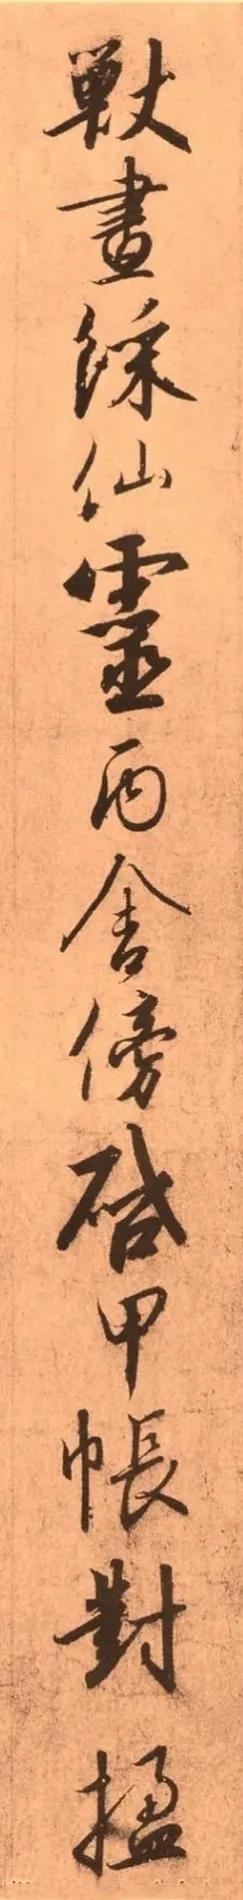 獸畫綵仙靈丙舍傍啓甲帳對楹